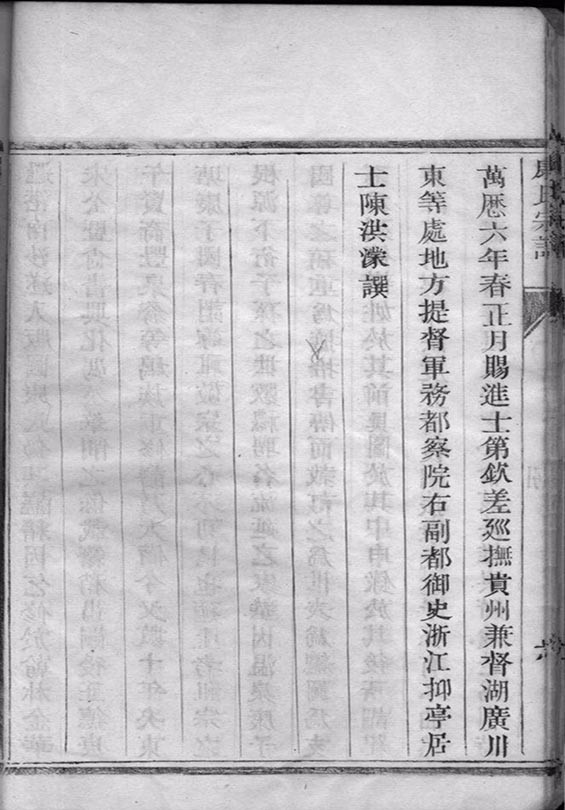 氏宗譜
萬厯六年春正月賜進士第欽差廵撫貴州兼督湖廣川
東等處地方提督軍務都察院右副都御史浙江抑亭居
士陳洪濛譔